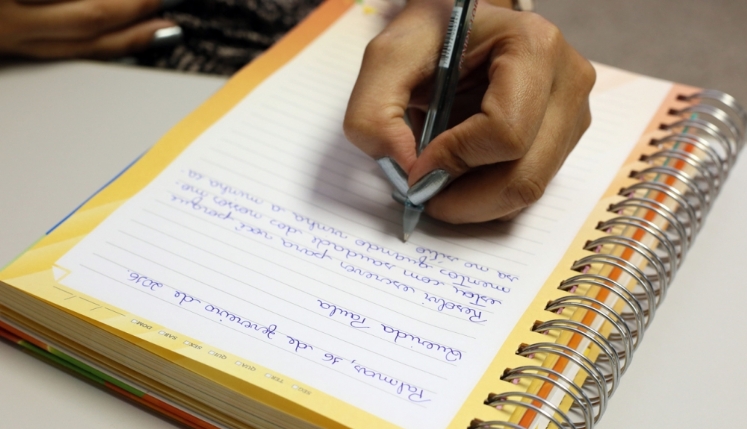 Palmas, 16 de fevereiro de 2016
Querida Paula
Resolvi escrever para você porque
estou com saudade dos nossos mo
mentos quando vinha a minha ca
sa me